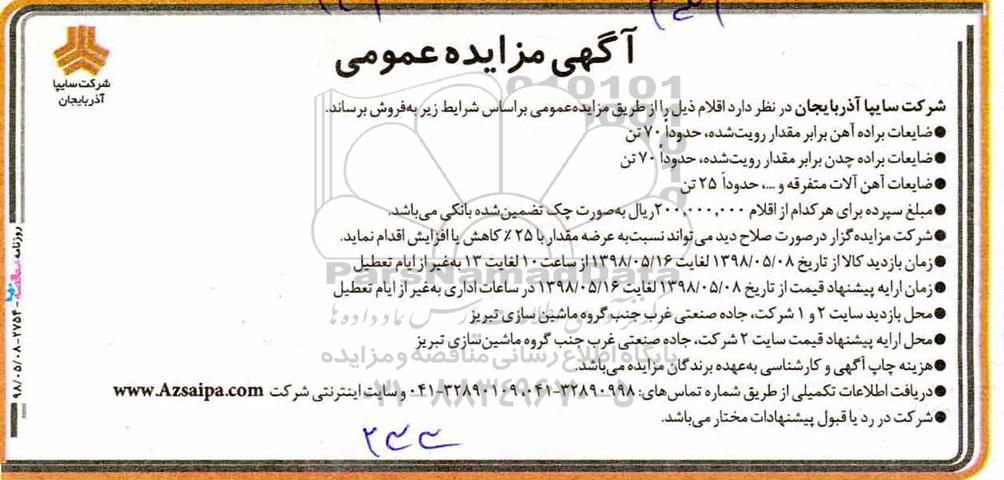 آگهی مزایده عمومی
شرکت سایپا
آذربایجان
شرکت سایپا آذربایجان در نظر دارد اقلام ذیل را از طریق مزایده عمومی براساس شرایط زیر به فروش برساند.
●ضایعات براده آهن برابر مقدار رویت شده، حدوداً ۷۰ تن
●ضایعات براده چدن برابر مقدار رویت شده، حدوداً ۷۰ تن
●ضایعات آهن آلات متفرقه و ...، حدوداً ۲۵ تن
●مبلغ سپرده برای هر کدام از اقلام ۲۰۰,۰۰۰,۰۰۰ ریال به صورت چک تضمین شده بانکی می باشد.
●شرکت مزایده گزار در صورت صلاح دید می تواند نسبت به عرضه مقدار با ۲۵٪ کاهش یا افزایش اقدام نماید.
●زمان بازدید کالا از تاریخ ۱۳۹۸/۰۵/۰۸ لغایت ۱۳۹۸/۰۵/۱۶ از ساعت ۱۰ لغایت ۱۳ به غیر از ایام تعطیل
●زمان ارایه پیشنهاد قیمت از تاریخ ۱۳۹۸/۰۵/۰۸ لغایت ۱۳۹۸/۰۵/۱۶ در ساعات اداری به غیر از ایام تعطیل
●محل بازدید سایت ۲ و ۱ شرکت، جاده صنعتی غرب جنب گروه ماشین سازی تبریز
●محل ارایه پیشنهاد قیمت سایت ۲ شرکت، جاده صنعتی غرب جنب گروه ماشین سازی تبریز
●هزینه چاپ آگهی و کارشناسی به عهده برندگان مزایده می باشد.
●دریافت اطلاعات تکمیلی از طریق شماره تماس های: ۰۴۱-۳۲۸۹۰۹۹۸ ،۰۴۱-۳۲۸۹۰۱۰۹ و سایت اینترنتی شرکت www.Azsaipa.com
●شرکت در رد یا قبول پیشنهادات مختار می باشد.
ParsNamadData
پایگاه اطلاع رسانی مناقصه و مزایده
۰۲۱-۸۸۳۴۹۶۷۰-۵
روزنامه مناقصه - ۲۷۵۴ - ۹۸/۰۵/۰۸